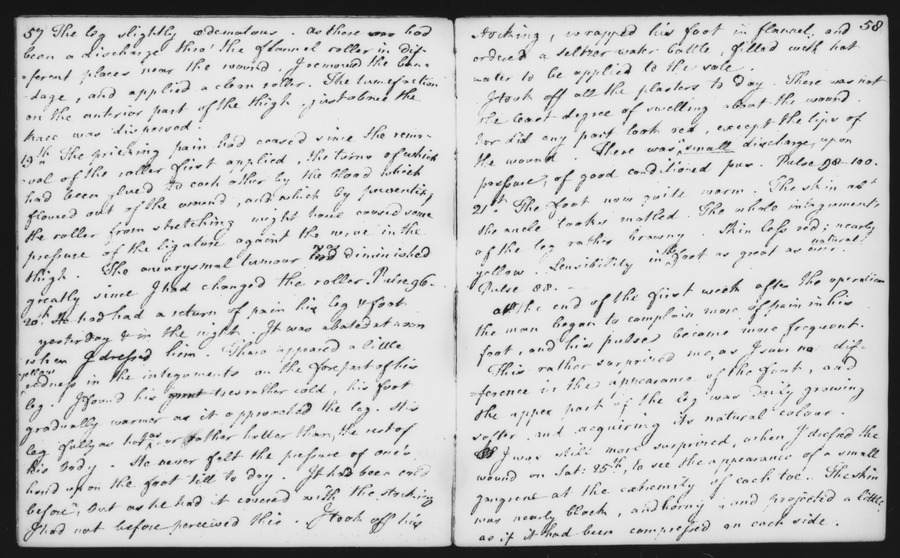 57 The leg slightly œdematous. As there was had
been a discharge thro' the flannel roller in dif-
-ferent places near the wound, I removed the ban-
-dage, and applied a clean roller. The tumefaction
on the anterior part of the thigh, just above the
knee was dispersed.
19th The pricking pain had ceased since the remo-
-val of the roller first applied, the turns of which
had been glued to each other by the blood which
flowed out of the wound, and which by preventing
the roller from stretching might have caused some
pressure of the ligature against the nerve in the
thigh. The aneurysmal tumour had diminished
greatly since I had changed the roller. Pulse 96.
20th He had had a return of pain his leg & foot
yesterday & in the night. It was abated at noon
when I dressed him. There appeared a little
yellow
redness in the integuments on the forepart of his
leg. I found his great toes rather cold, his foot
gradually warmer as it approached the leg. His
leg fully as hot as, or rather hotter than, the rest of
his body. He never felt the pressure of one's
hand upon the foot till to day. It had been cold
before, but as he had it covered with the stocking
I had not before perceived this. I took off his
58
stocking, wrapped his foot in flannel, and
ordered a seltzer water bottle, filled with hot
water to be applied to the sole.
I took off all the plasters to day. There was not
the least degree of swelling about the wound.
Nor did any part look red, except the lips of
the wound. There was small discharge, upon
pressure, of good conditioned pus. Pulse 98-100.
21st The foot now quite warm. The skin abt
the ancle looks motled. The whole integuments
of the leg rather brawny. Skin less red; nearly
natural
yellow. Sensibility in the foot as great as ever.
Pulse 88. -
At the end of the first week after the operation
the man began to complain more of pain in his
foot, and his pulse became more frequent.
This rather surprised me, as I saw no dif-
-ference in the appearance of the foot, and
the upper part of the leg was daily growing
softer and acquiring its natural colour.
I was still more surprised, when I dressed the
wound on Sat: 25th, to see the appearance of a small
gangrene at the extremity of each toe. The skin
was nearly black, and horny, and projected a little,
as if it had been compressed on each side.